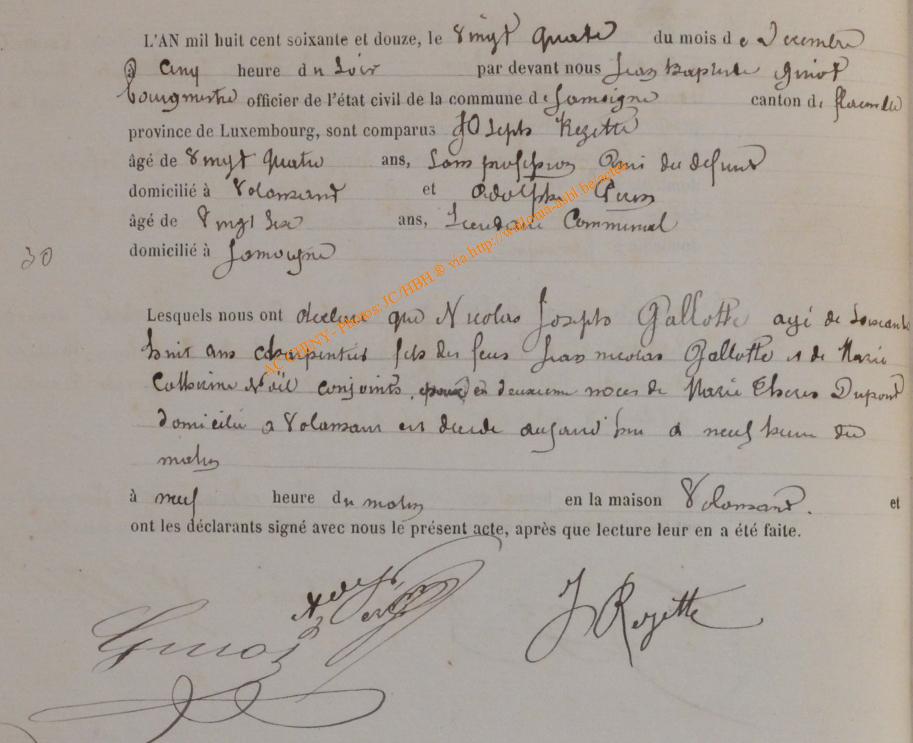 L'AN mil huit cent soixante et douze, le vingt quatre du mois de Decembre
à cinq heure du soir par devant nous Jean Baptiste Guiot
bourgmestre officier de l'état civil de la commune de Jamoigne canton de florenville
province de Luxembourg, sont comparus Joseph Rezette
âgé de vingt quatre ans, sans profession ami du defunt
domicilié à Valansart et Adolphe
âgé de vingt six ans, Secretaire Communal
domicilié à Jamoigne
30
Lesquels nous ont declare que Nicolas Joseph Gallotte agé de soixante
huit ans charpentier fils des feus Jean nicolas Gallotte et de Marie
Catherine Noël conjoints, epoux en deuxieme noces de Marie Therese Dupont
domicilié a Valansart est decede aujourd'hui a neuf heure du
matin
à neuf heure du matin en la maison Valansart. et
ont les déclarants signé avec nous le présent acte, après que lecture leur en a été faite.
J Rezette
Guiot
ACCHERNY - Photos: JC/HBH © via http://